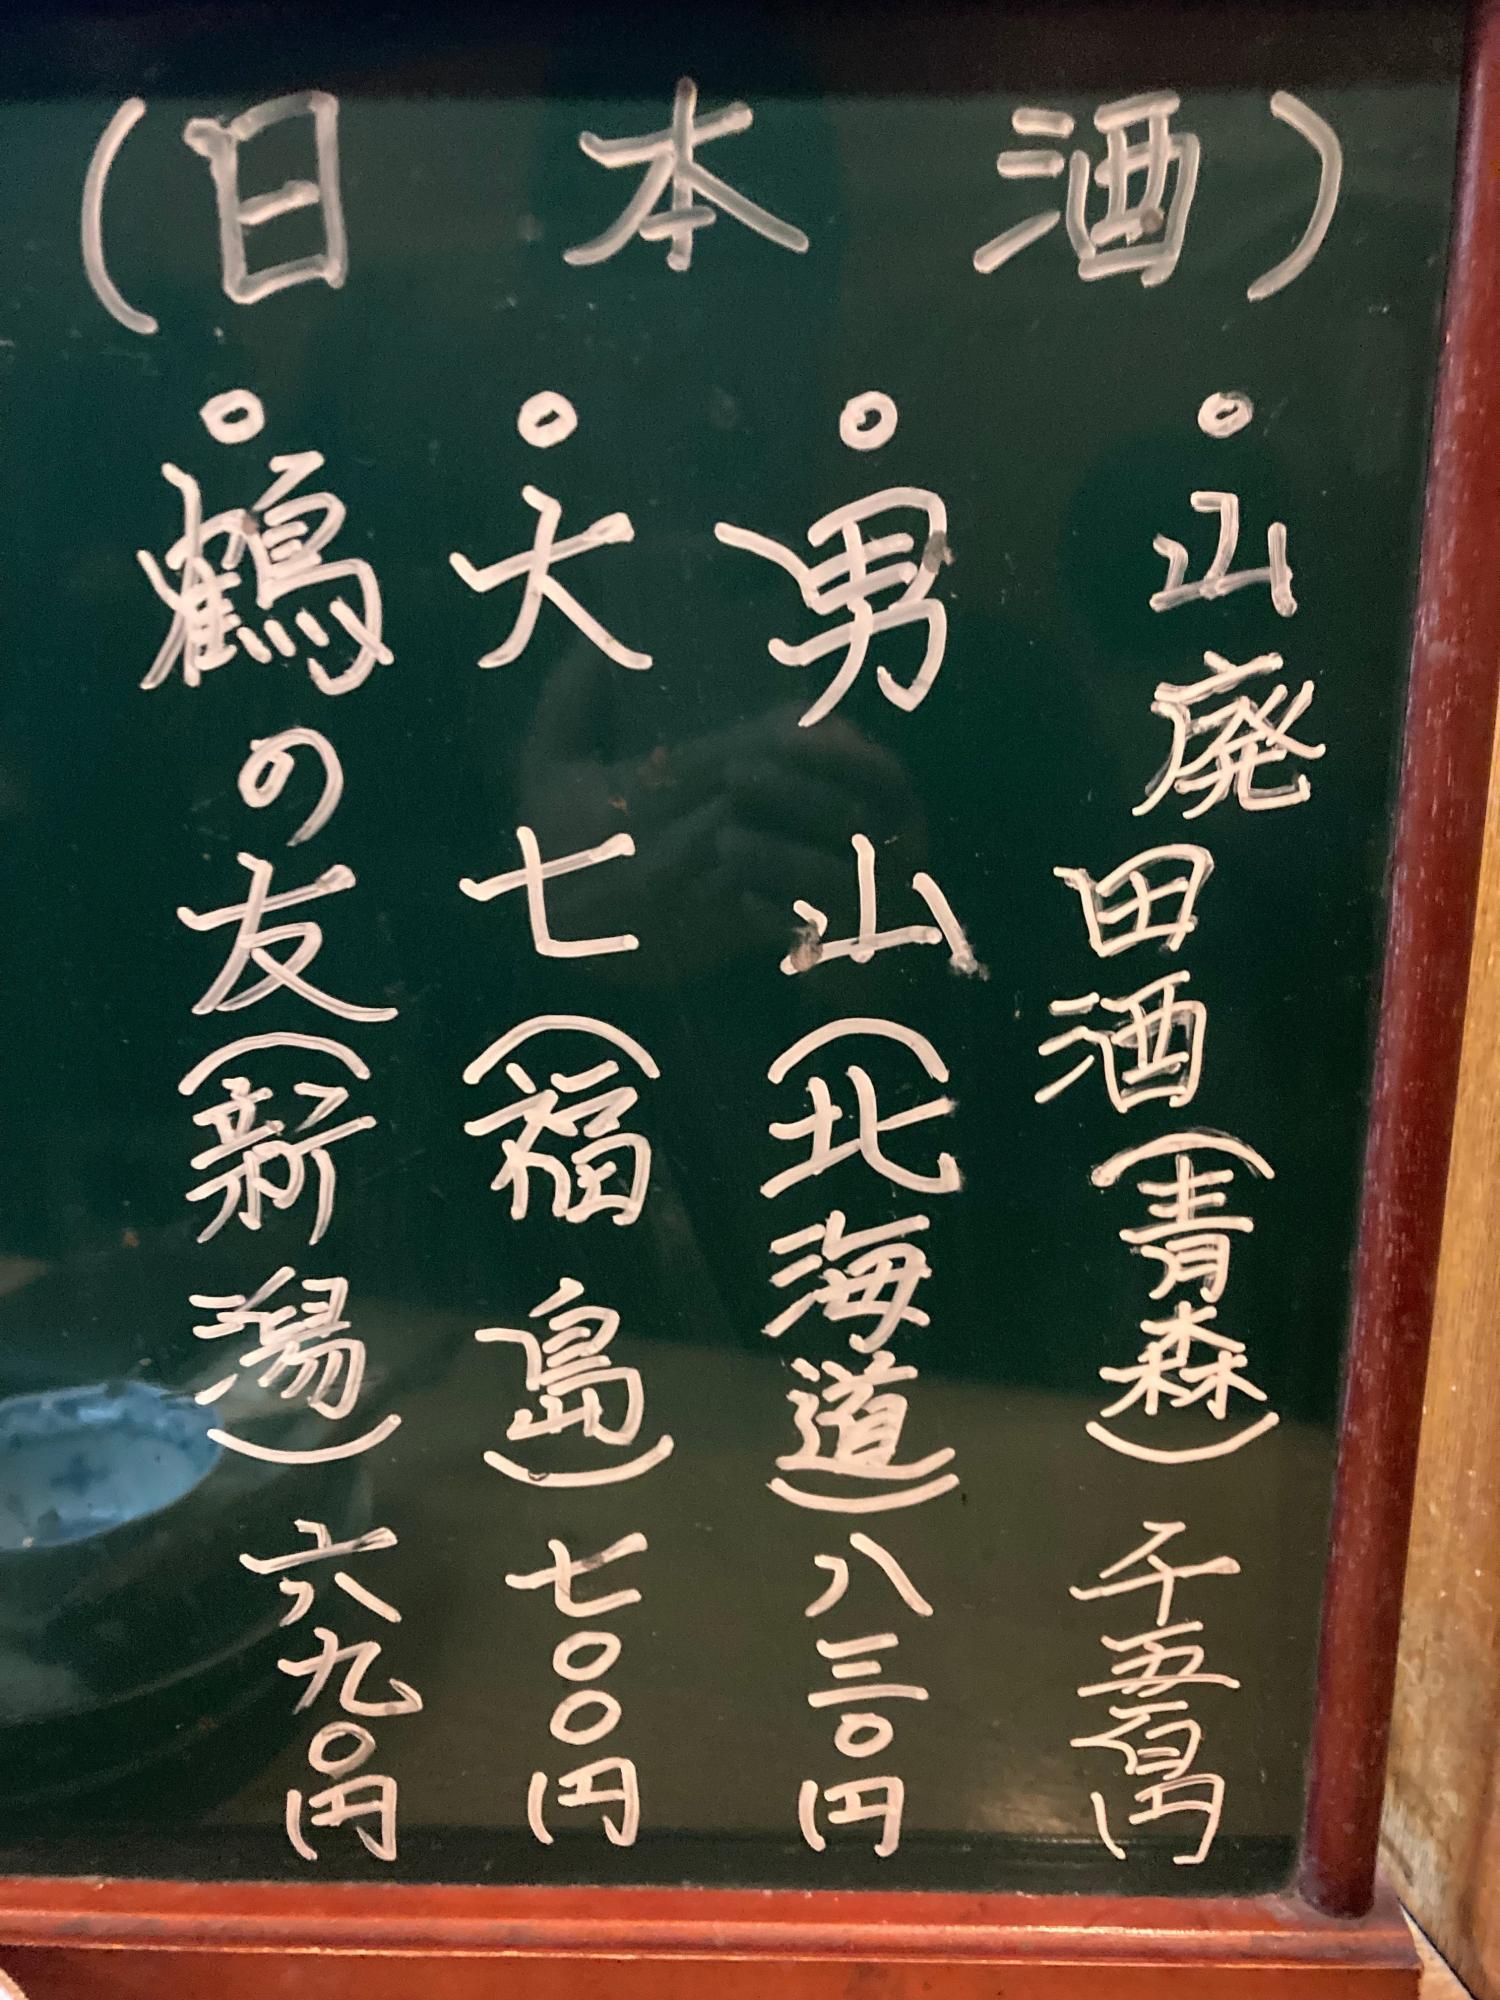 (日本酒)
○山廃田酒(青森) 千五百円
○男山(北海道) 八三〇円
○大七(福島) 七〇〇円
○鶴の友(新潟) 六九〇円